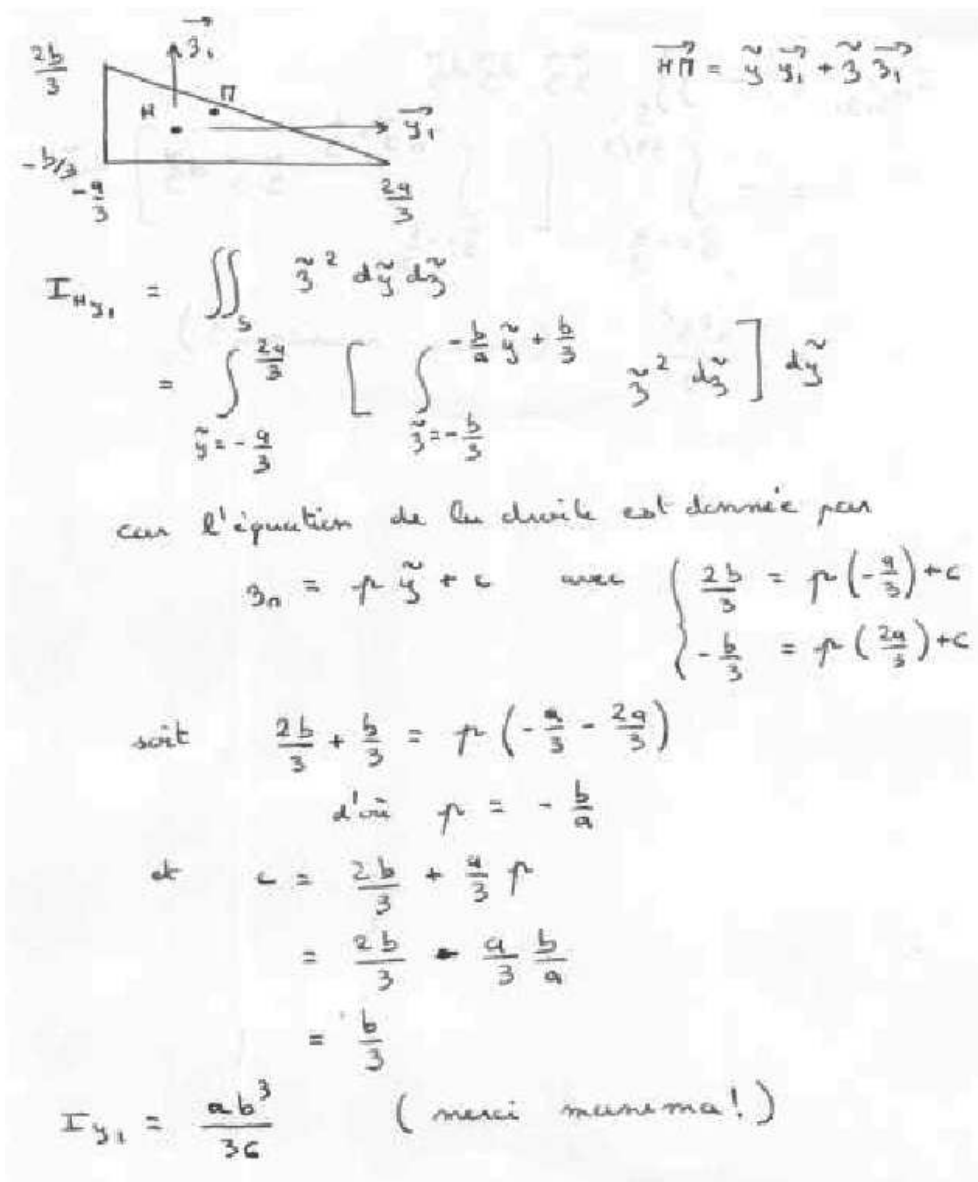 2b/3
z⃗₁
HM⃗ = ỹ y⃗₁ + z̃ z⃗₁
H
M
y⃗₁
-b/3
-a/3
2a/3
I_{Hy₁} = ∬_S z̃² dỹ dz̃
= ∫_{ỹ=-a/3}^{2a/3} [ ∫_{z̃=-b/3}^{-b/a ỹ + b/3} z̃² dz̃ ] dỹ
car l'équation de la droite est donnée par
z_D = p ỹ + c avec { 2b/3 = p(-a/3)+c
-b/3 = p(2a/3)+c
soit 2b/3 + b/3 = p(-a/3 - 2a/3)
d'où p = -b/a
et c = 2b/3 + a/3 p
= 2b/3 - a/3 b/a
= b/3
I_{y₁} = ab³/36 (merci